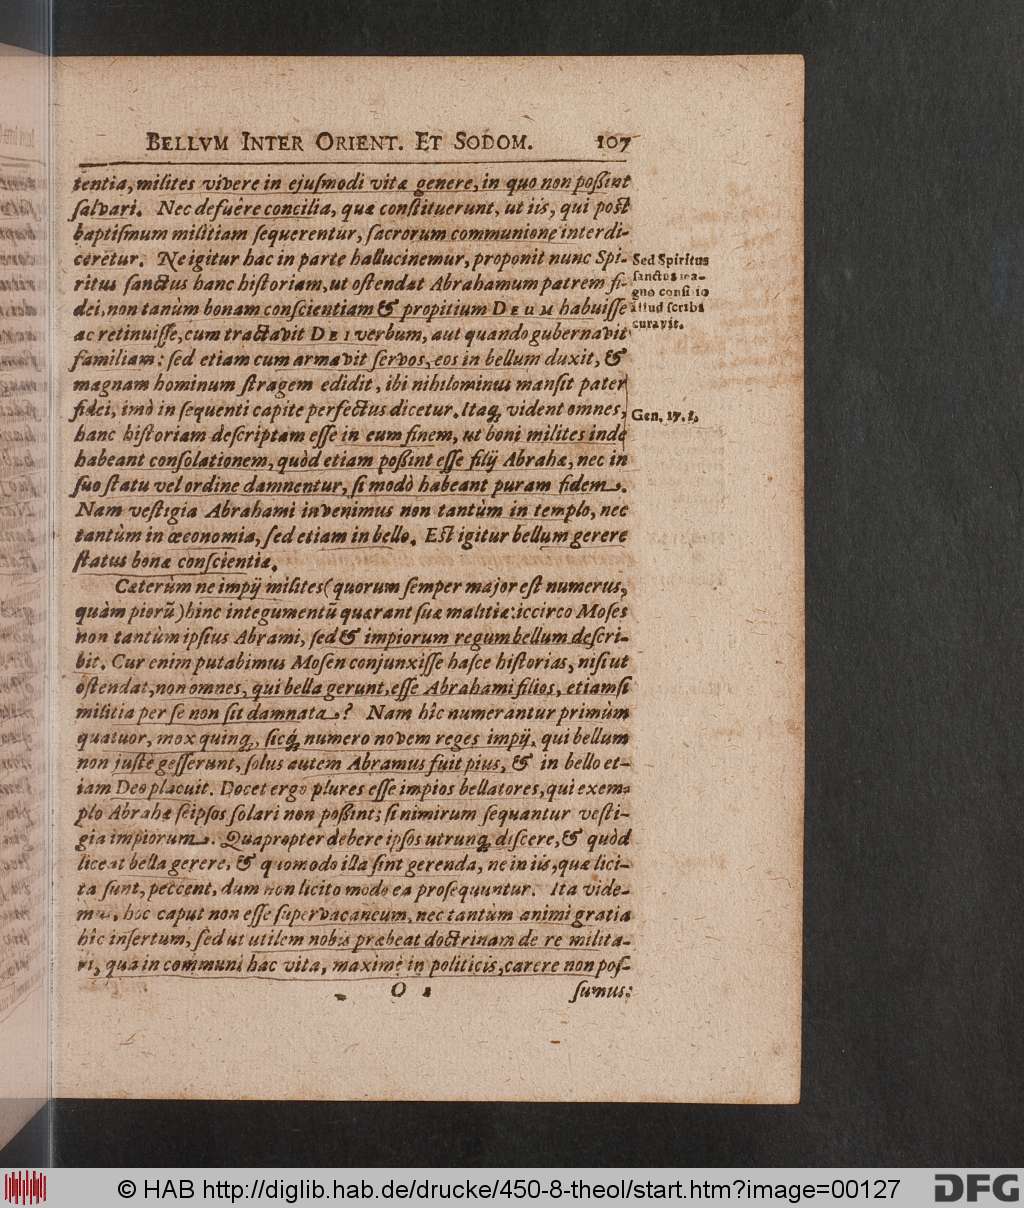 BELLVM INTER ORIENT. ET SODOM. 107
tentia, milites vivere in ejuſmodi vitæ genere, in quo non poßint
ſalvari. Nec defuêre concilia, quæ conſtituerunt, ut iis, qui poſt
baptiſmum militiam ſequerentur, ſacrorum communione interdi-
ceretur. Ne igitur hac in parte hallucinemur, proponit nunc Spi-
ritus ſanctus hanc hiſtoriam, ut oſtendat Abrahamum patrem fi-
dei, non tanùm bonam conſcientiam & propitium DEUM habuiſſe
ac retinuiſſe, cum tractavit DEI verbum, aut quando gubernavit
familiam: ſed etiam cum armavit ſervos, eos in bellum duxit, &
magnam hominum ſtragem edidit, ibi nihilominus manſit pater
fidei, imò in ſequenti capite perfectus dicetur. Itaq; vident omnes,
hanc hiſtoriam deſcriptam eſſe in eum finem, ut boni milites inde
habeant conſolationem, quòd etiam poßint eſſe filij Abrahæ, nec in
ſuo ſtatu vel ordine damnentur, ſi modò habeant puram fidem.
Nam veſtigia Abrahami invenimus non tantùm in templo, nec
tantùm in œconomia, ſed etiam in bello. Eſt igitur bellum gerere
ſtatus bonæ conſcientiæ.
Sed Spiritus
ſanctus ma-
gno conſilio
illud ſcribi
curavit.
Gen. 17. 1.
Cæterùm ne impij milites (quorum ſemper major eſt numerus,
quàm piorũ) hinc integumentũ quærant ſuæ malitiæ: iccirco Moſes
non tantùm ipſius Abrami, ſed & impiorum regum bellum deſcri-
bit. Cur enim putabimus Moſen conjunxiſſe haſce hiſtorias, niſi ut
oſtendat, non omnes, qui bella gerunt, eſſe Abrahami filios, etiamſi
militia per ſe non ſit damnata? Nam hîc numerantur primùm
quatuor, mox quinq;, ſicq; numero novem reges impij, qui bellum
non juſtè geſſerunt, ſolus autem Abramus fuit pius, & in bello et-
iam Deo placuit. Docet ergo plures eſſe impios bellatores, qui exem-
plo Abrahæ ſeipſos ſolari non poßint; ſi nimirum ſequantur veſti-
gia impiorum. Quapropter debere ipſos utrunq; diſcere, & quòd
liceat bella gerere, & quomodo illa ſint gerenda, ne in iis, quæ lici-
ta ſunt, peccent, dum non licito modo ea proſequuntur. Ita vide-
mus, hoc caput non eſſe ſupervacaneum, nec tantùm animi gratia
hîc inſertum, ſed ut utilem nobis præbeat doctrinam de re milita-
ri, qua in communi hac vita, maximè in politicis, carere non poſ-
O 2 ſumus:
© HAB http://diglib.hab.de/drucke/450-8-theol/start.htm?image=00127
DFG